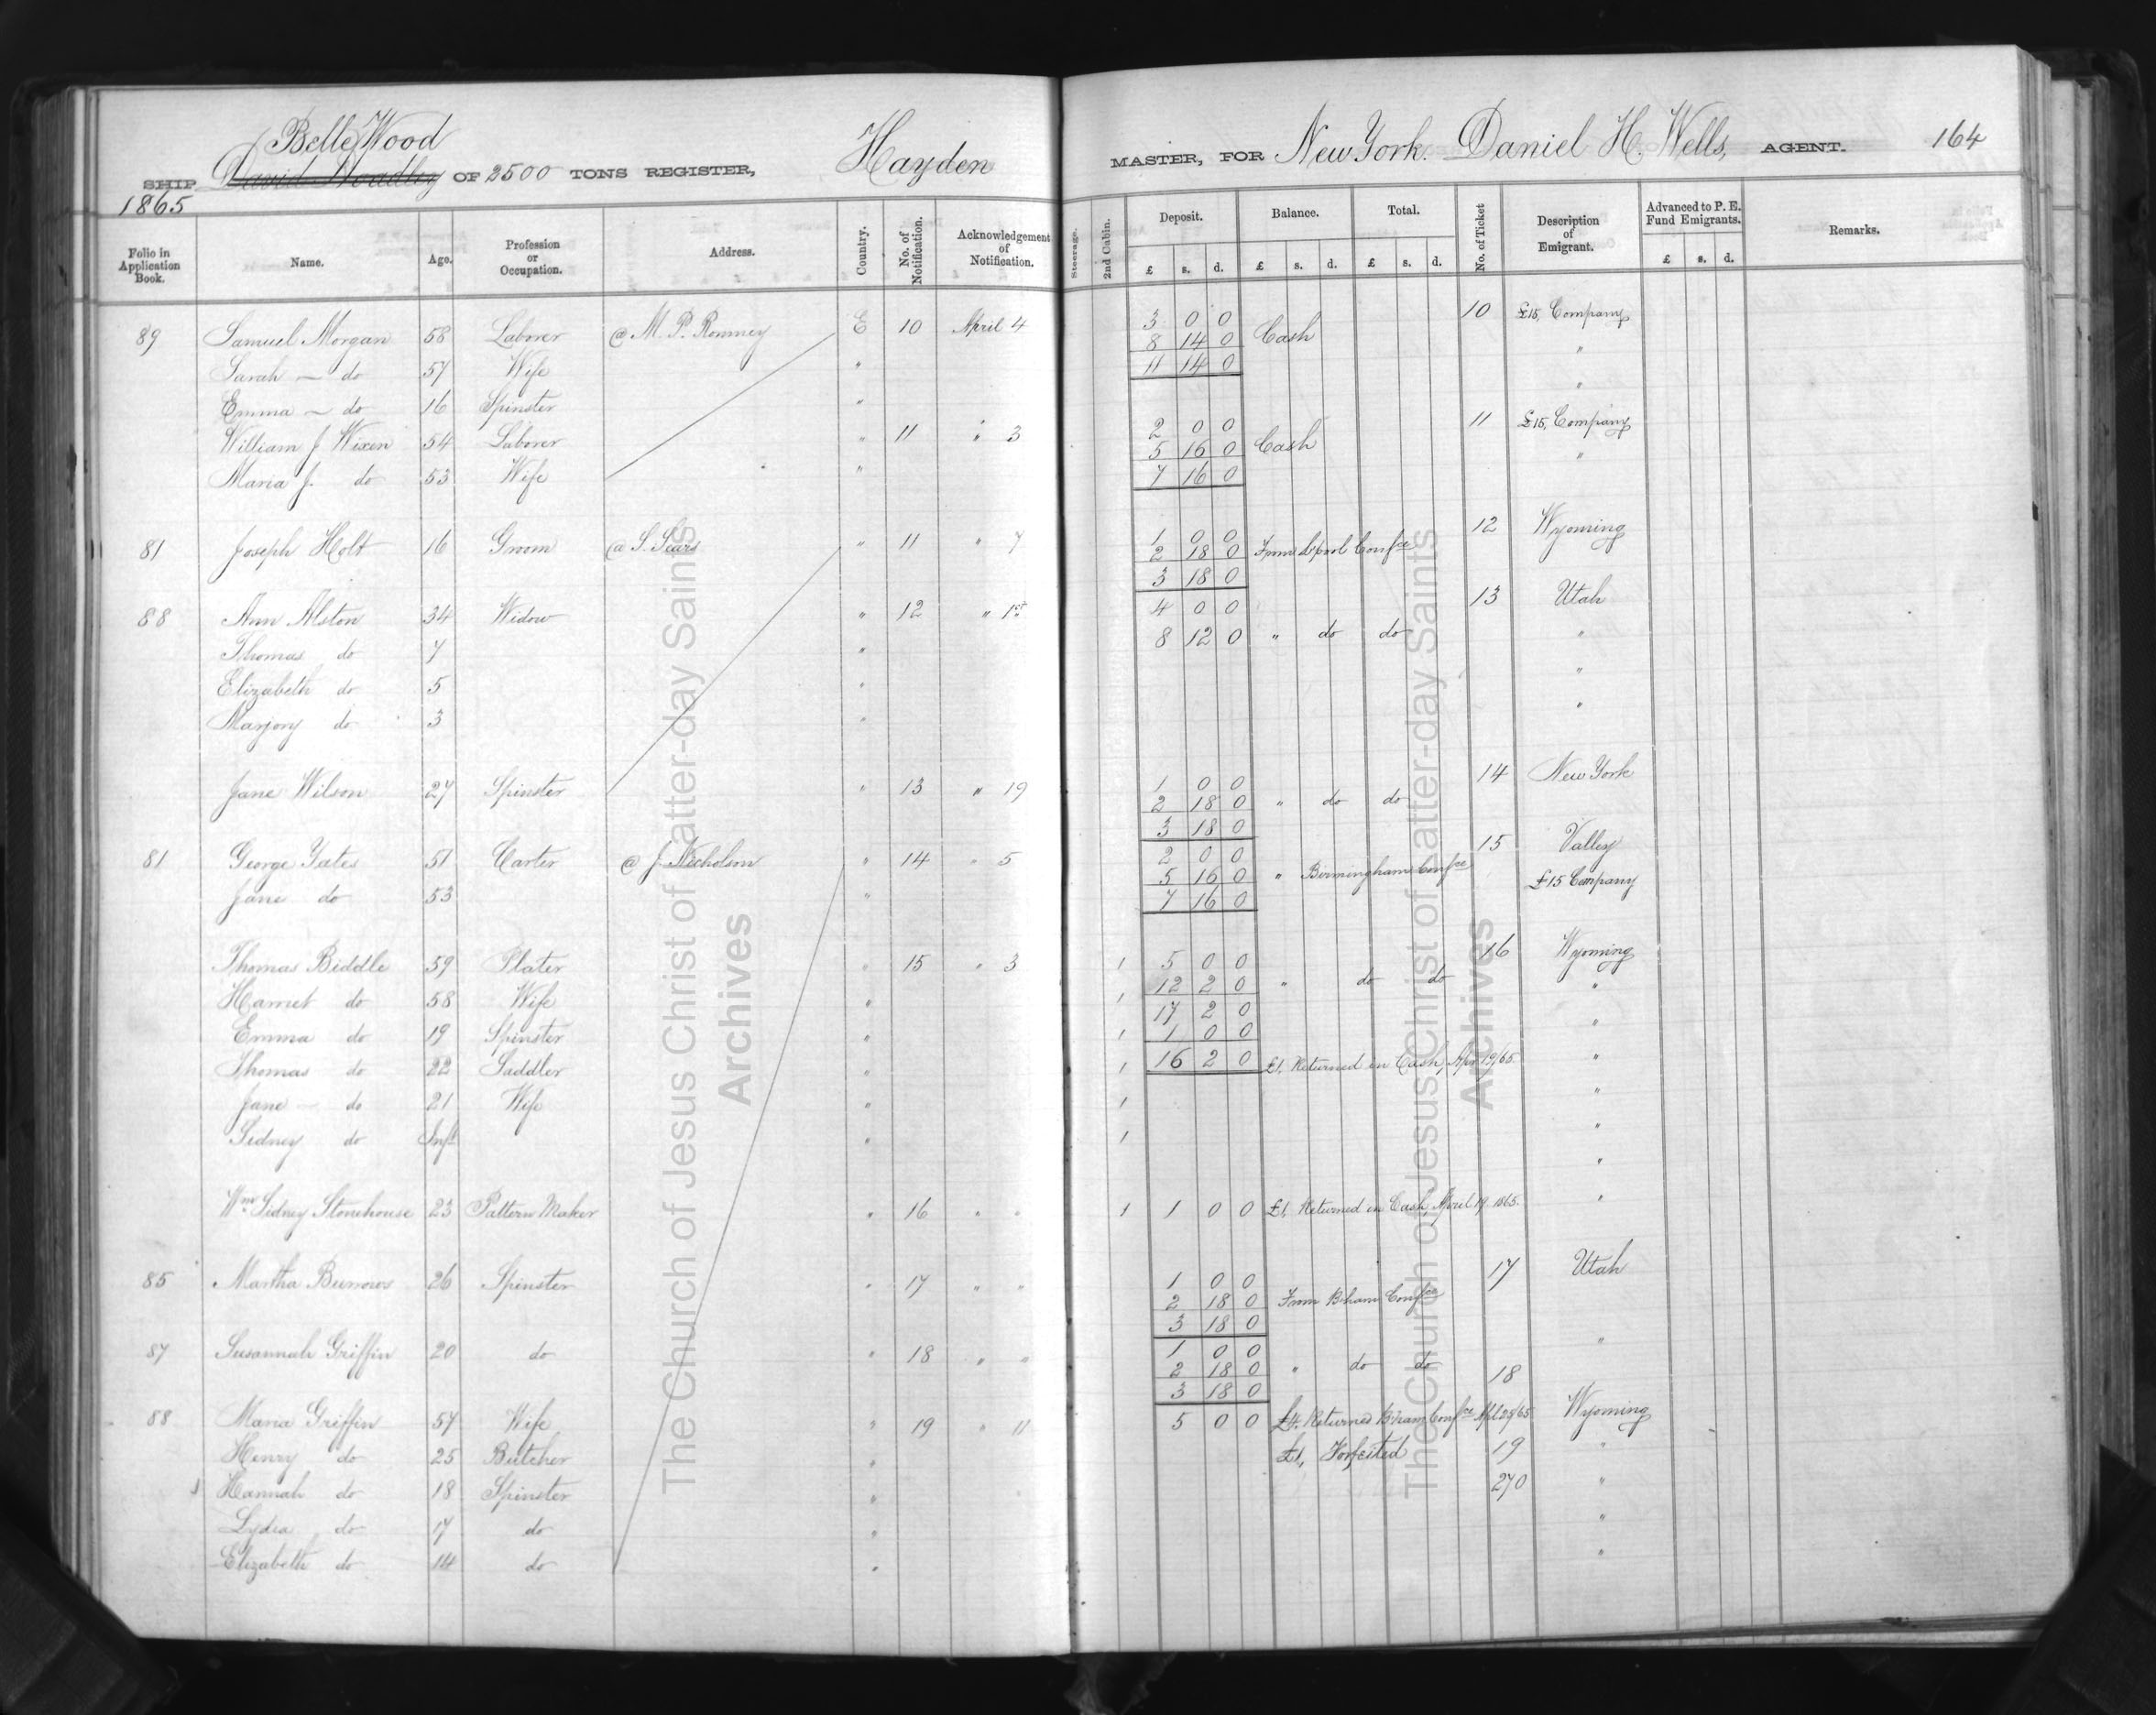 Belle Wood
SHIP David Hoadley OF 2500 TONS REGISTER, Hayden MASTER, FOR New York. Daniel H. Wells, AGENT. 164
1865
Folio in Application Book. Name. Age. Profession or Occupation. Address. Country. No. of Notification. Acknowledgement of Notification. Steerage. 2nd Cabin. Deposit. Balance. Total. No. of Ticket Description of Emigrant. Advanced to P. E. Fund Emigrants. Remarks.
£ s. d. £ s. d. £ s. d. £ s. d.
89 Samuel Morgan 58 Laborer @ M. P. Romney E 10 April 4 3 0 0 10 £15, Company
8 14 0 Cash "
Sarah — do 57 Wife " 11 14 0 "
Emma — do 16 Spinster "
William J Wixen 54 Laborer " 11 " 3 2 0 0 11 £15, Company
5 16 0 Cash "
Maria J. do 53 Wife " 7 16 0
81 Joseph Holt 16 Groom @ S. Sears " 11 " 7 1 0 0 12 Wyoming
2 18 0 From L'pool Confce
3 18 0
88 Ann Alston 34 Widow " 12 " 1st 4 0 0 13 Utah
8 12 0 " do do "
Thomas do 7 "
Elizabeth do 5 " "
Marjory do 3 " "
Jane Wilson 27 Spinster " 13 " 19 1 0 0 14 New York
2 18 0 " do do
3 18 0
81 George Yates 51 Carter @ J. Nicholson " 14 " 5 2 0 0 15 Valley
5 16 0 " Birmingham Confce £15 Company
Jane do 53 " 7 16 0
Thomas Biddle 59 Plater " 15 " 3 1 5 0 0 16 Wyoming
12 2 0 " do do "
Harriet do 58 Wife " 1 17 2 0
Emma do 19 Spinster " 1 1 0 0 "
Thomas do 22 Saddler " 1 16 2 0 £1, Returned in Cash, Apr 19/65. "
Jane — do 21 Wife " 1 "
Sidney do Inft " 1 "
"
Wm Sidney Stonehouse 23 Pattern Maker " 16 " " 1 1 0 0 £1, Returned in Cash, April 19. 1865. "
85 Martha Burrows 26 Spinster " 17 " " 1 0 0 17 Utah
2 18 0 From B'ham Confce
3 18 0
87 Susannah Griffin 20 do " 18 " " 1 0 0 "
2 18 0 " do do 18
3 18 0
88 Maria Griffin 57 Wife " 19 " 11 5 0 0 £4. Returned B'ham Confce Apl 25/65 Wyoming
Henry do 25 Butcher " £1, Forfeited 19 "
Hannah do 18 Spinster " 270 "
Lydia do 17 do " "
Elizabeth do 14 do " "
The Church of Jesus Christ of Latter-day Saints
Archives
The Church of Jesus Christ of Latter-day Saints
Archives